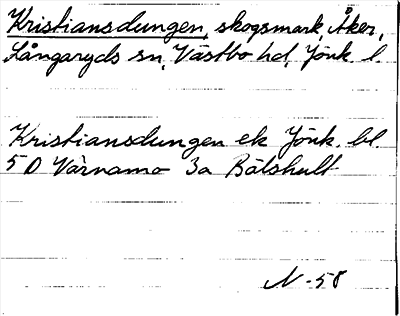 Kristiansdungen, skogsmark, Åker,
Långaryds sn, Västbo hd, Jönk. l.
Kristiansdungen ek Jönk. bl.
5 D Värnamo 3a Bälshult
N-58